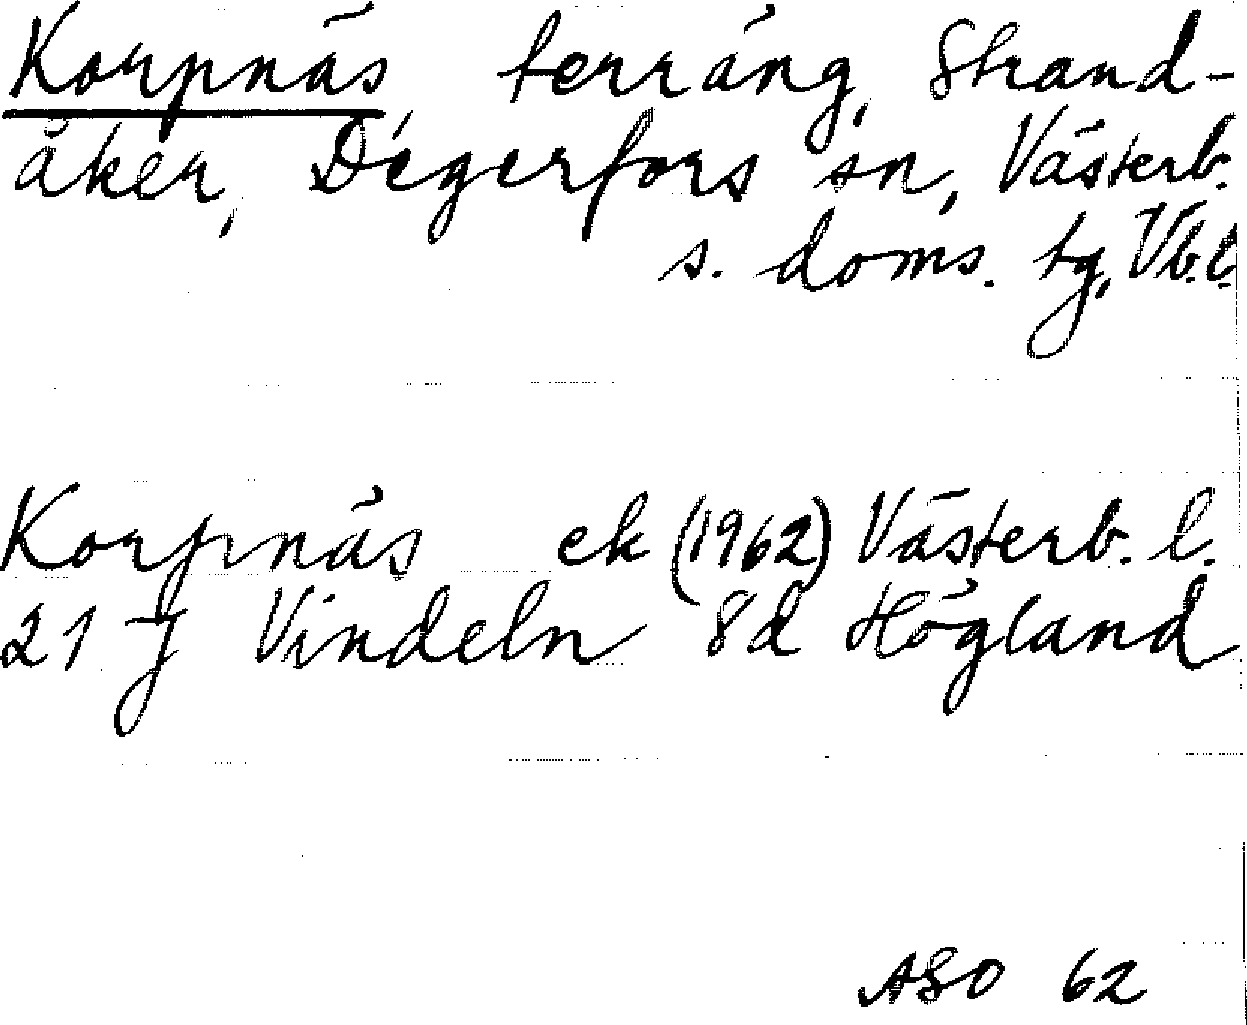 Korpnäs, terräng, Strand-
åker, Degerfors sn, Västerb.
s. doms. tg, Vb. l.
Korpnäs ek (1962) Västerb. l.
21 J Vindeln 8d Högland
ASO 62